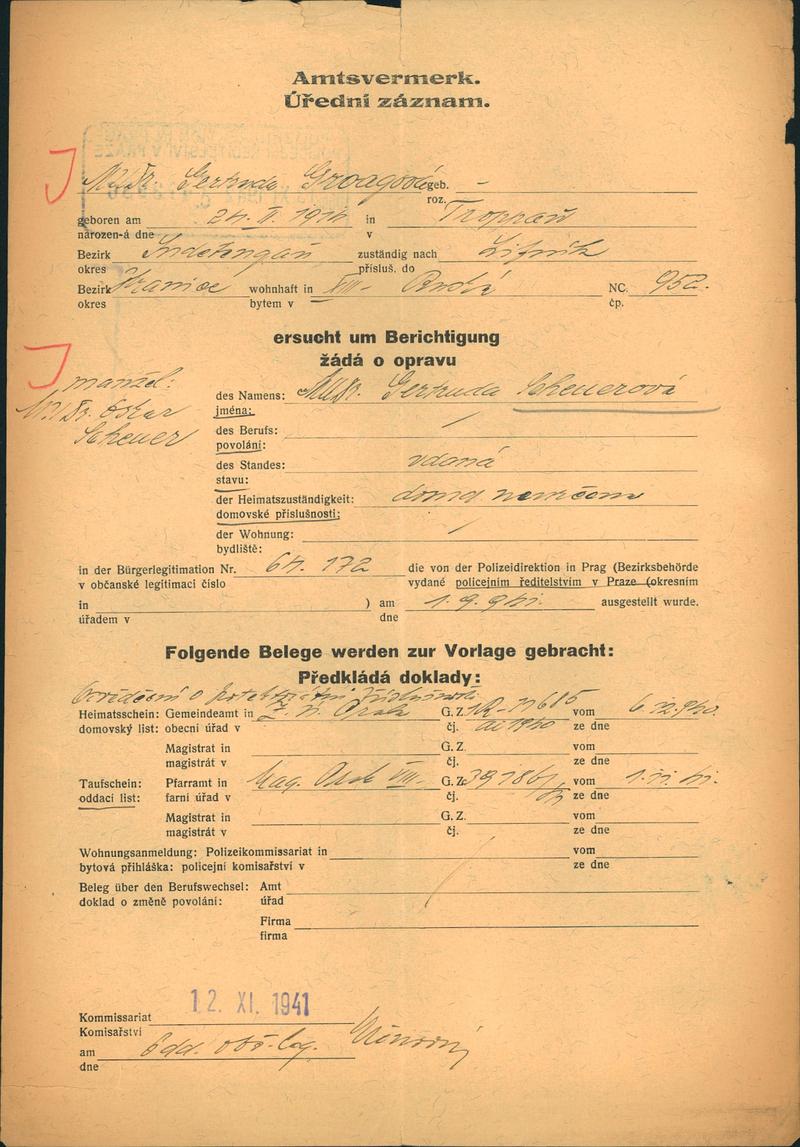 Amtsvermerk.
Úřední záznam.
J
MUDr. Gertruda Groagová geb. –
roz.
geboren am 24. II. 1914 in Troppau
narozen-á dne v
Bezirk Sudetengau zuständig nach Lipník
okres přísluš. do
Bezirk Hranice wohnhaft in XIII- NC. 952.
okres bytem v čp.
ersucht um Berichtigung
žádá o opravu
J
manžel:
MUDr. Oskar
Scheuer
des Namens: MUDr. Gertruda Scheuerová
jména:
des Berufs: /
povolání:
des Standes: vdaná
stavu:
der Heimatszuständigkeit:
domovské příslušnosti:
der Wohnung: /
bydliště:
in der Bürgerlegitimation Nr. 64.172 die von der Polizeidirektion in Prag (Bezirksbehörde
v občanské legitimaci číslo vydané policejním ředitelstvím v Praze (okresním
in ) am 1.9. ausgestellt wurde.
úřadem v dne
Folgende Belege werden zur Vorlage gebracht:
Předkládá doklady:
Osvědčení o protektorátní příslušnosti
Heimatsschein: Gemeindeamt in G. Z. vom 6.12.940.
domovský list: obecní úřad v čj. ze dne
Magistrat in G. Z. vom
magistrát v čj. ze dne
Taufschein: Pfarramt in Mag. G. Z. vom 1.11.41.
oddací list: farní úřad v čj. ze dne
Magistrat in G. Z. vom
magistrát v čj. ze dne
Wohnungsanmeldung: Polizeikommissariat in vom
bytová přihláška: policejní komisařství v ze dne
Beleg über den Berufswechsel: Amt
doklad o změně povolání: úřad
Firma
firma
12. XI. 1941
Kommissariat
Komisařství
am Odd. obč. leg.
dne